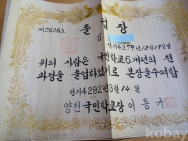 졸업장
단기4279년12월19일생
위의 사람은 국민학교6개년의 전
과정을 졸업하였기로 본장을수여함
단기4282년3월14일
양천국민학교장 이동규
kobay